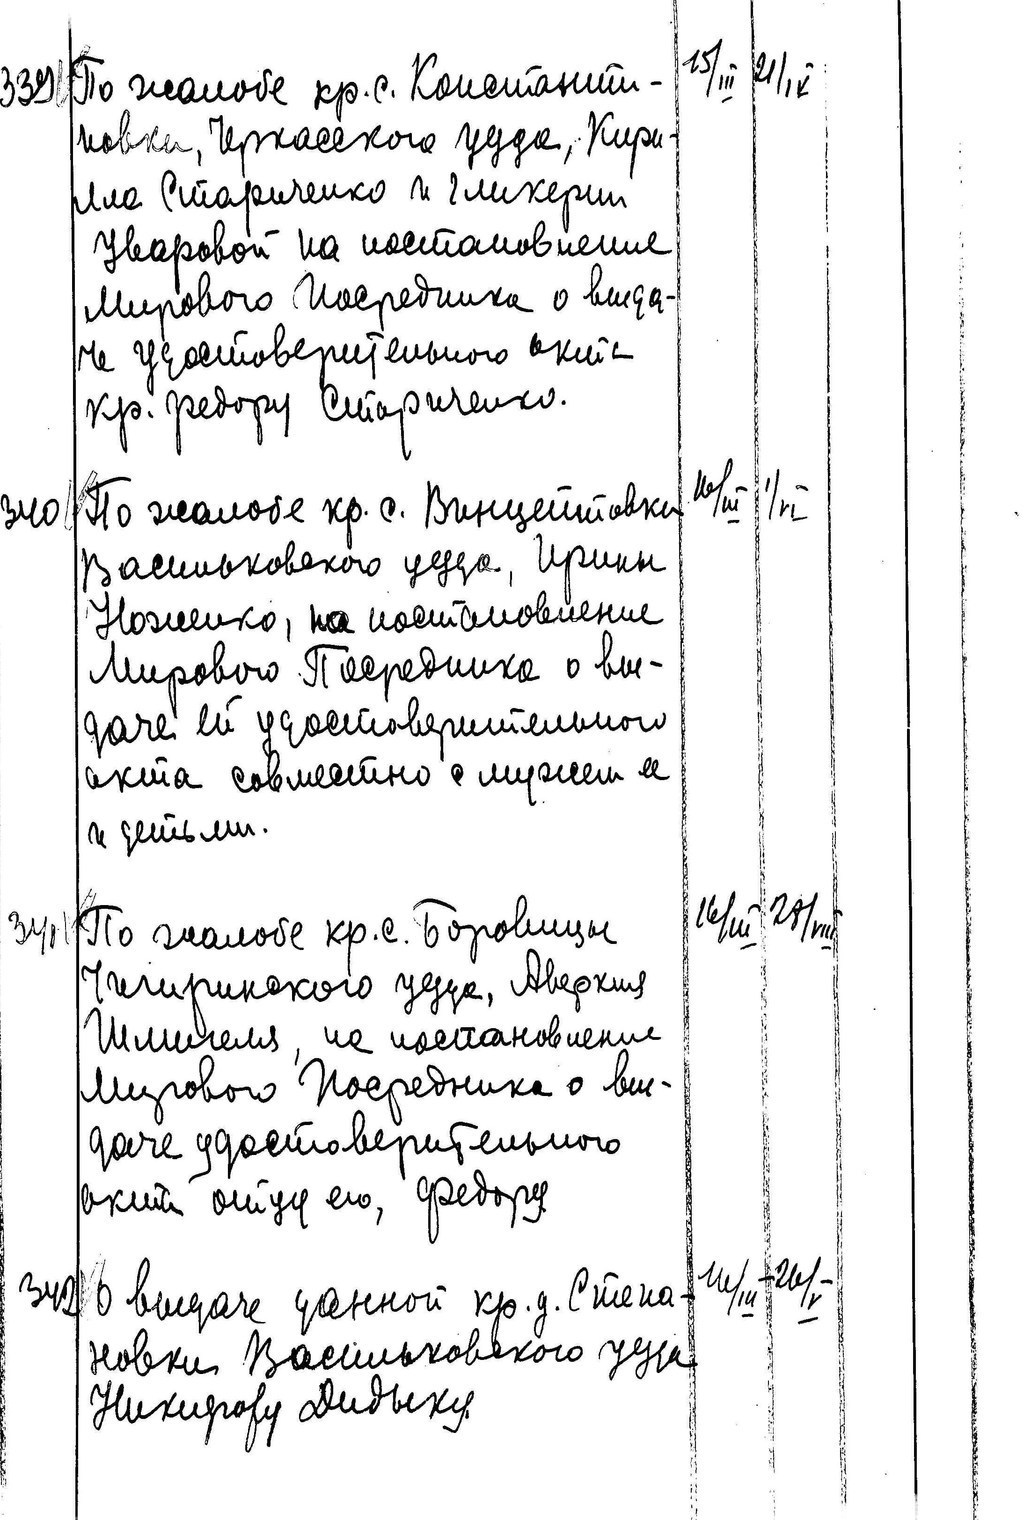 339 По жалобе кр. с. Константи- 15/III 21/IV
новки, Черкасского уезда, Кири-
лла Стариченко и Гликерии
Уваровой на постановление
Мирового Посредника о выда-
че удостоверительного акта
кр. Федору Стариченко.
340 По жалобе кр. с. Винцентовки 16/III 1/VI
Васильковского уезда, Ирины
Ноженко, на постановление
Мирового Посредника о вы-
даче ей удостоверительного
акта совместно с мужем ее
и детьми.
341 По жалобе кр. с. Боровицы 16/III 28/VIII
Чигиринского уезда, Аверкия
Шмигеля, на постановление
Мирового Посредника о вы-
даче удостоверительного
акта отцу его, Федору
342 О выдаче данной кр. д. Степа- 16/III 26/V
новки Васильковского уезда
Никифору Дидыку